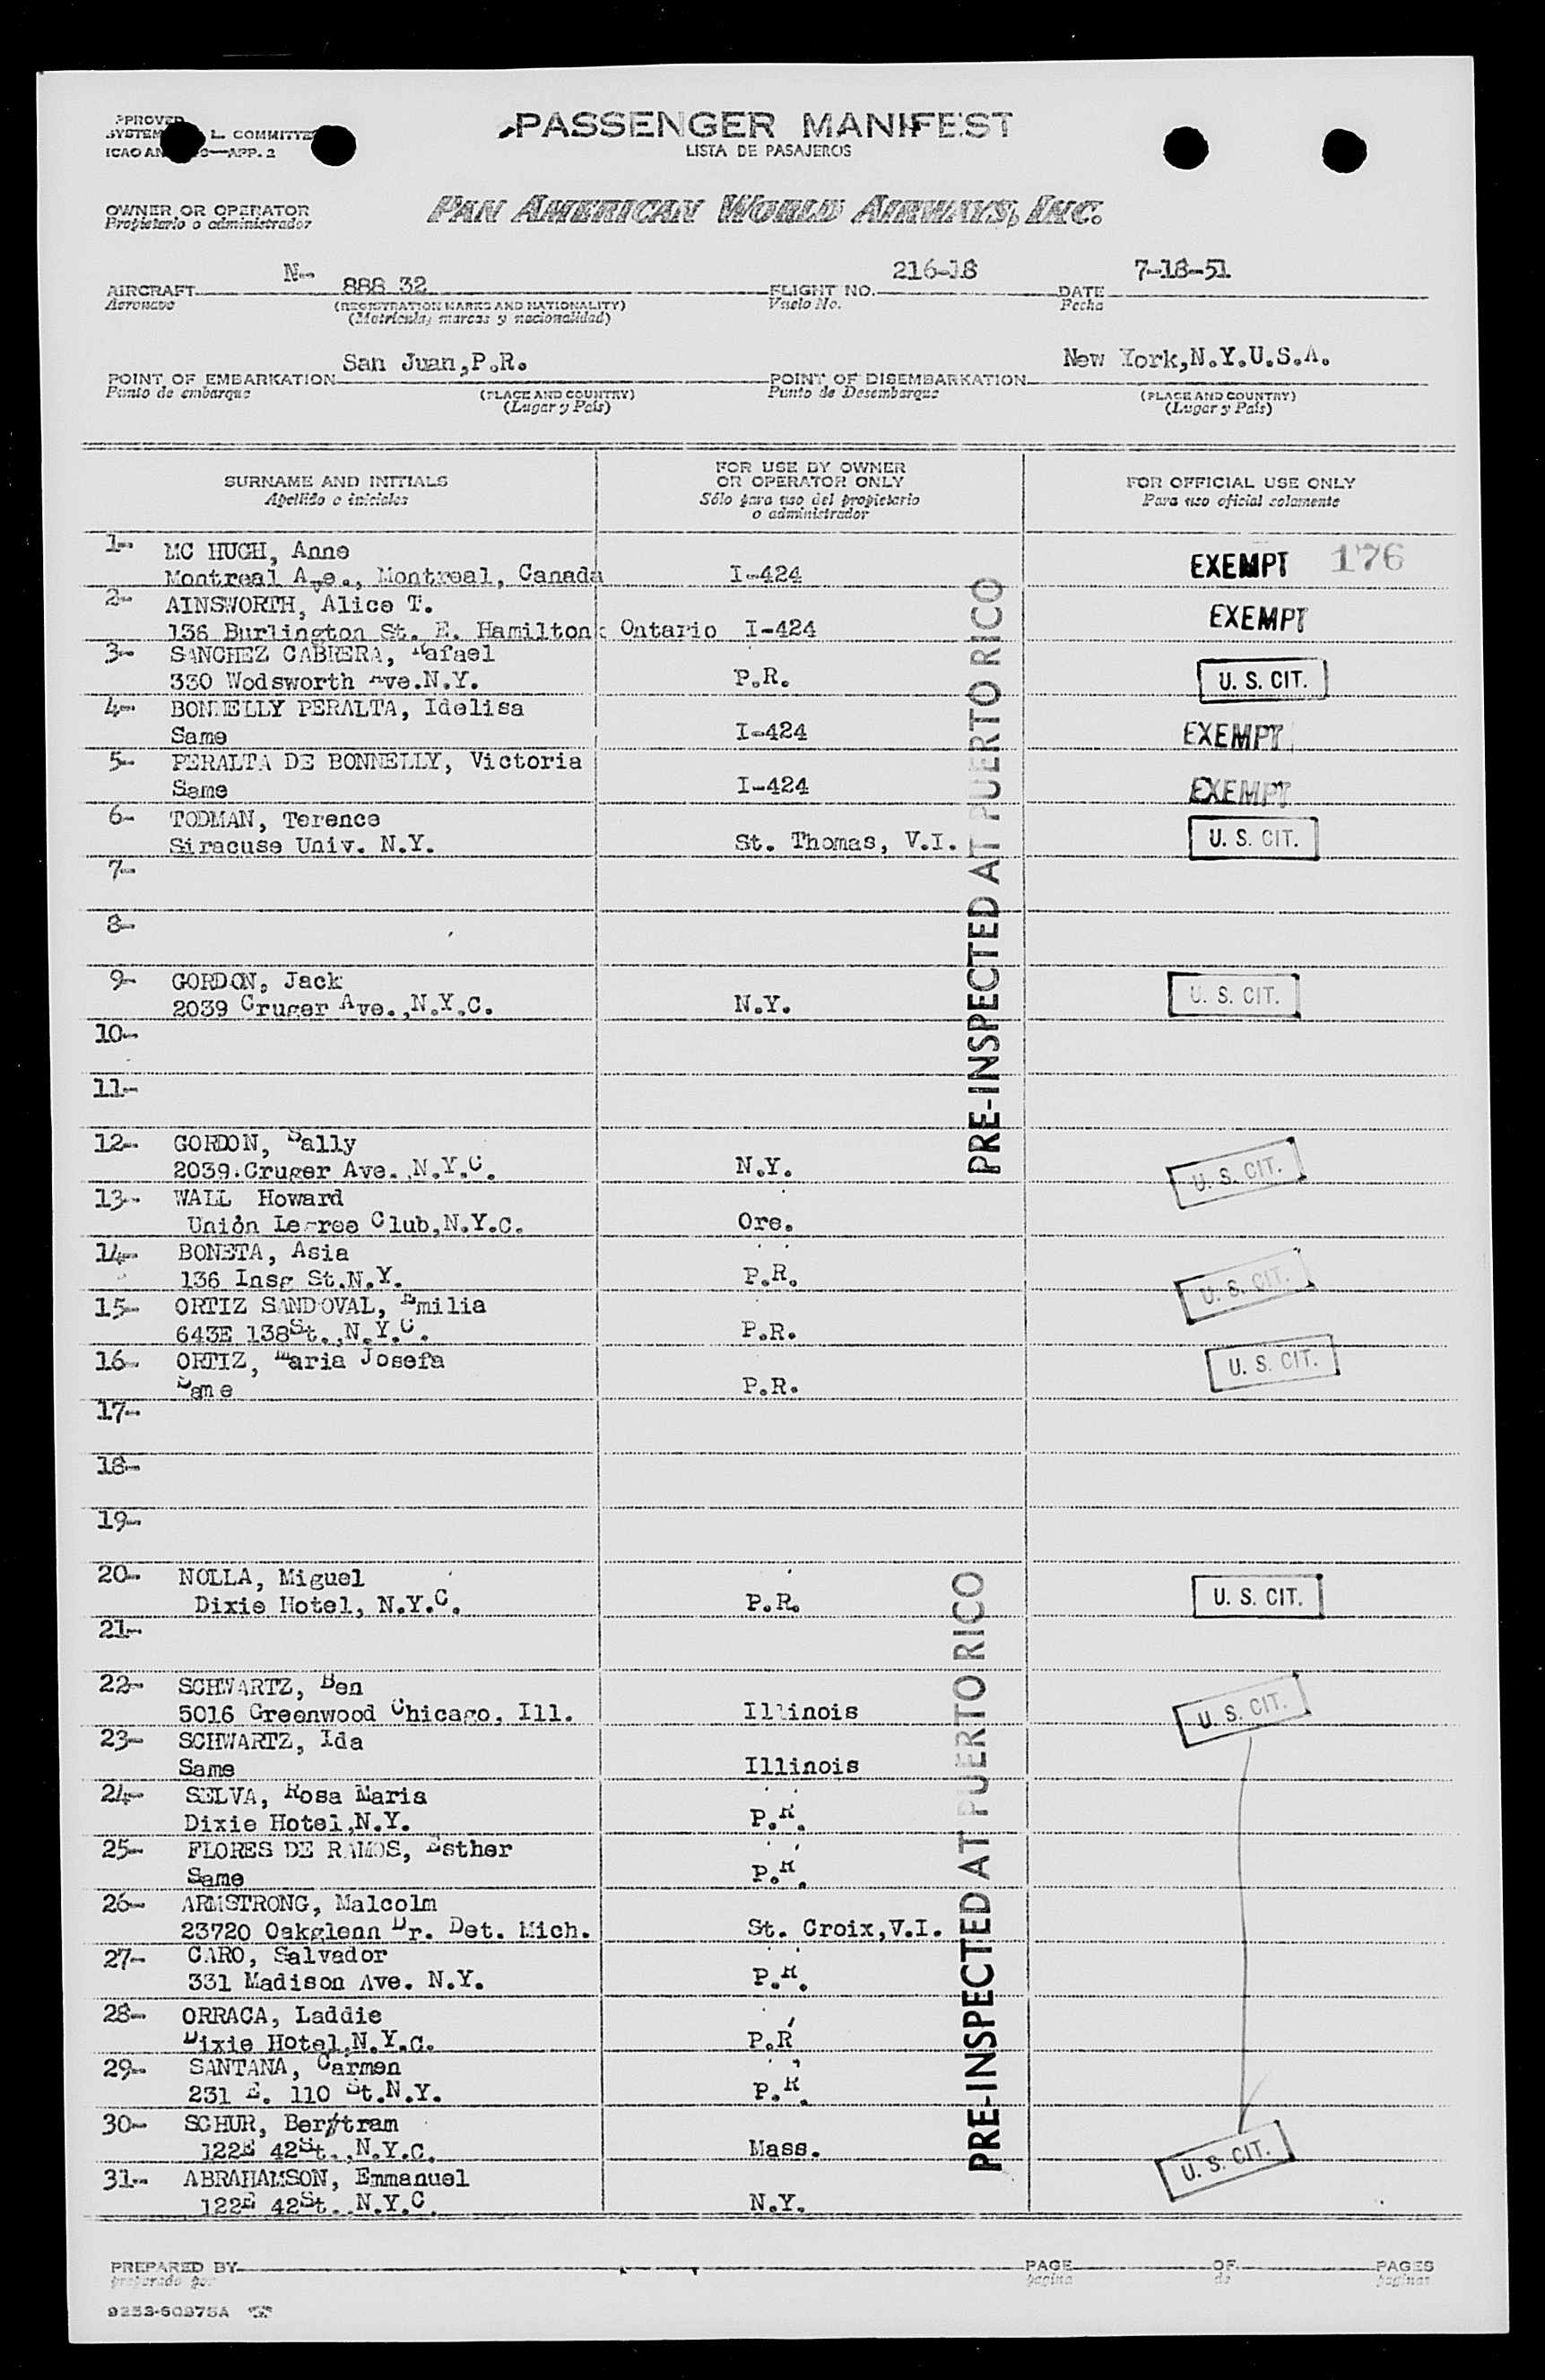 PASSENGER MANIFEST
LISTA DE PASAJEROS
APP. 2
OWNER OR OPERATOR
Propietario o administrador
PAN AMERICAN WORLD AIRWAYS, INC.
AIRCRAFT N- 888 32 FLIGHT NO. 216-18 DATE 7-18-51
Aeronave (REGISTRATION MARKS AND NATIONALITY) Vuelo No. Fecha
(Matricula, marcas y nacionalidad)
POINT OF EMBARKATION San Juan,P.R. POINT OF DISEMBARKATION New York,N.Y.U.S.A.
Punto de embarque (PLACE AND COUNTRY) Punto de Desembarque (PLACE AND COUNTRY)
(Lugar y País) (Lugar y País)
SURNAME AND INITIALS FOR USE BY OWNER OR OPERATOR ONLY FOR OFFICIAL USE ONLY
Apellido e iniciales Sólo para uso del propietario o administrador Para uso oficial solamente
1- MC HUGH, Anne EXEMPT 176
Montreal Ave., Montreal, Canada I-424
2- AINSWORTH, Alice T. EXEMPT
136 Burlington St. E. Hamilton Ontario I-424
3- SANCHEZ CABRERA, Rafael
330 Wodsworth Ave.N.Y. P.R. U. S. CIT.
4- BONNELLY PERALTA, Idelisa
Same I-424 EXEMPT
5- PERALTA DE BONNELLY, Victoria
Same I-424 EXEMPT
6- TODMAN, Terence
Siracuse Univ. N.Y. St. Thomas, V.I. U. S. CIT.
7-
8-
9- GORDON, Jack
2039 Cruger Ave.,N.Y.C. N.Y. U. S. CIT.
10-
11-
PRE-INSPECTED AT PUERTO RICO
12- GORDON, Sally
2039 Cruger Ave. ,N.Y.C. N.Y. U. S. CIT.
13- WALL Howard
Club,N.Y.C. Ore.
14- BONETA, Asia
136 St.N.Y. P.R. U. S. CIT.
15- ORTIZ SANDOVAL, Emilia
643E 138St.,N.Y.C. P.R.
16- ORTIZ, Maria Josefa
Same P.R. U. S. CIT.
17-
18-
19-
20- NOLLA, Miguel
Dixie Hotel, N.Y.C. P.R. U. S. CIT.
21-
22- SCHWARTZ, Ben
5016 Greenwood Chicago, Ill. Illinois U. S. CIT.
23- SCHWARTZ, Ida
Same Illinois
24- SELVA, Rosa Maria
Dixie Hotel,N.Y. P.R.
25- FLORES DE RAMOS, Esther
Same P.R.
26- ARMSTRONG, Malcolm
23720 Oakglenn Dr. Det. Mich. St. Croix,V.I.
27- CARO, Salvador
331 Madison Ave. N.Y. P.R.
28- ORRACA, Laddie
Dixie Hotel,N.Y.C. P.R
29- SANTANA, Carmen
231 E. 110 St.N.Y. P.R.
30- SCHUR, Bertram
122E 42St.,N.Y.C. Mass. U. S. CIT.
31- ABRAHAMSON, Emmanuel
122E 42St. N.Y.C. N.Y.
PRE-INSPECTED AT PUERTO RICO
PREPARED BY PAGE OF PAGES
preparado por pagina de paginas
9233-60975A